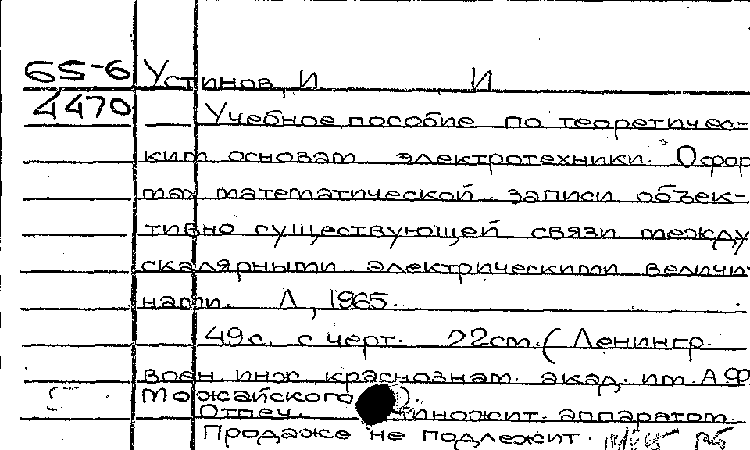 65-6 Устинов, И И
4470 Учебное пособие по теоретичес-
ким основам электротехники. О фор
мах математической записи объек-
тивно существующей связи между
скалярными электрическими величи
нами. Л, 1965.
49с. с черт. 22см. (Ленингр.
воен. инж. краснознам. акад. им. А Ф
Можайского).
Отпеч. множит. аппаратом.
Продаже не подлежит.